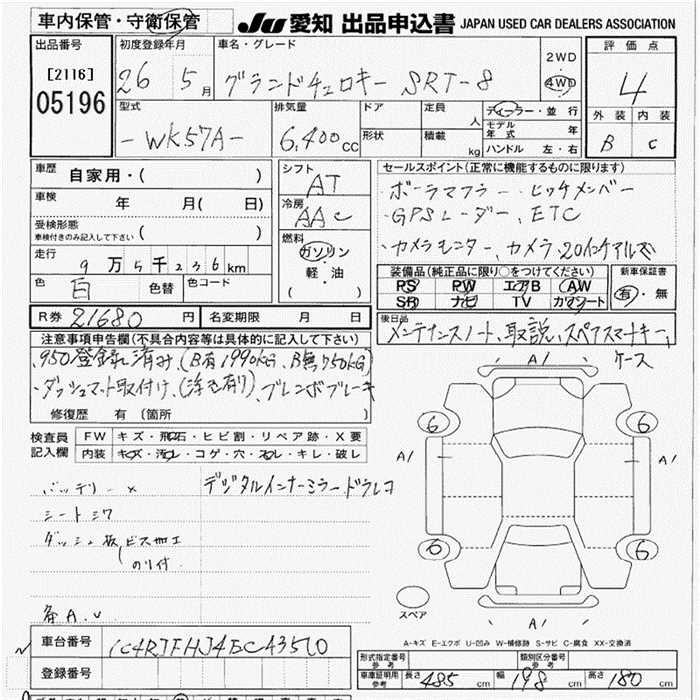 車内保管・守衛保管
JU 愛知 出品申込書 JAPAN USED CAR DEALERS ASSOCIATION
出品番号 初度登録年月 車名・グレード 評価点
[2116] 26 5月 グランドチェロキー SRT-8 2WD 4WD 4
05196
外装 内装
型式 排気量 ドア 定員 人 ディーラー・並行
モデル年式 年
-WK57A- 6,400cc 形状 積載 kg ハンドル 左・右
B C
車歴 自家用・( )
シフト AT
セールスポイント(正常に機能するものに限ります)
車検 年 月( 日)
冷房 AAC
・ボーラマフラー・ヒッチメンバー
・GPSレーダー、ETC
受検形態
車検付きのみ記入して下さい ( )
燃料 ガソリン
・カメラモニター、カメラ、20インチアルミ
走行 9万5千236km
軽・油
( )
装備品(純正品に限り○をつけてください) 新車保証書
色 白 色替 色コード
PS PW エアB AW 有・無
SR ナビ TV カワシート
R券 21680円 名変期限 月 日
後日品
メンテナンスノート、取説、スペアスマートキー、
ケース
注意事項申告欄(不具合内容等は具体的に記入して下さい)
・950登録済み(B有1990KG、B無750KG)
・ダッシュマット取付け、(浮き有り)、ブレンボブレーキ
修復歴 有 (箇所
検査員記入欄 FW キズ・飛石・ヒビ割・リペア跡・X要
内装 キズ・汚れ・コゲ・穴・スレ・キレ・破レ
A/
6 6
A/ A/
6 6
A/
バッテリー× デジタルインナーミラードラレコ
シートシワ
ダッシュ板ビス加工
のり付
各A.U
スペア
A-キズ E-エクボ U-凹み W-補修跡 S-サビ C-腐食 XX-交換済
車台番号 1C4RJFHJ4EC435
登録番号
形式指定番号 参考 類別区分番号 参考
車庫証明用 参考 長さ 485cm 幅 198cm 高さ 180cm